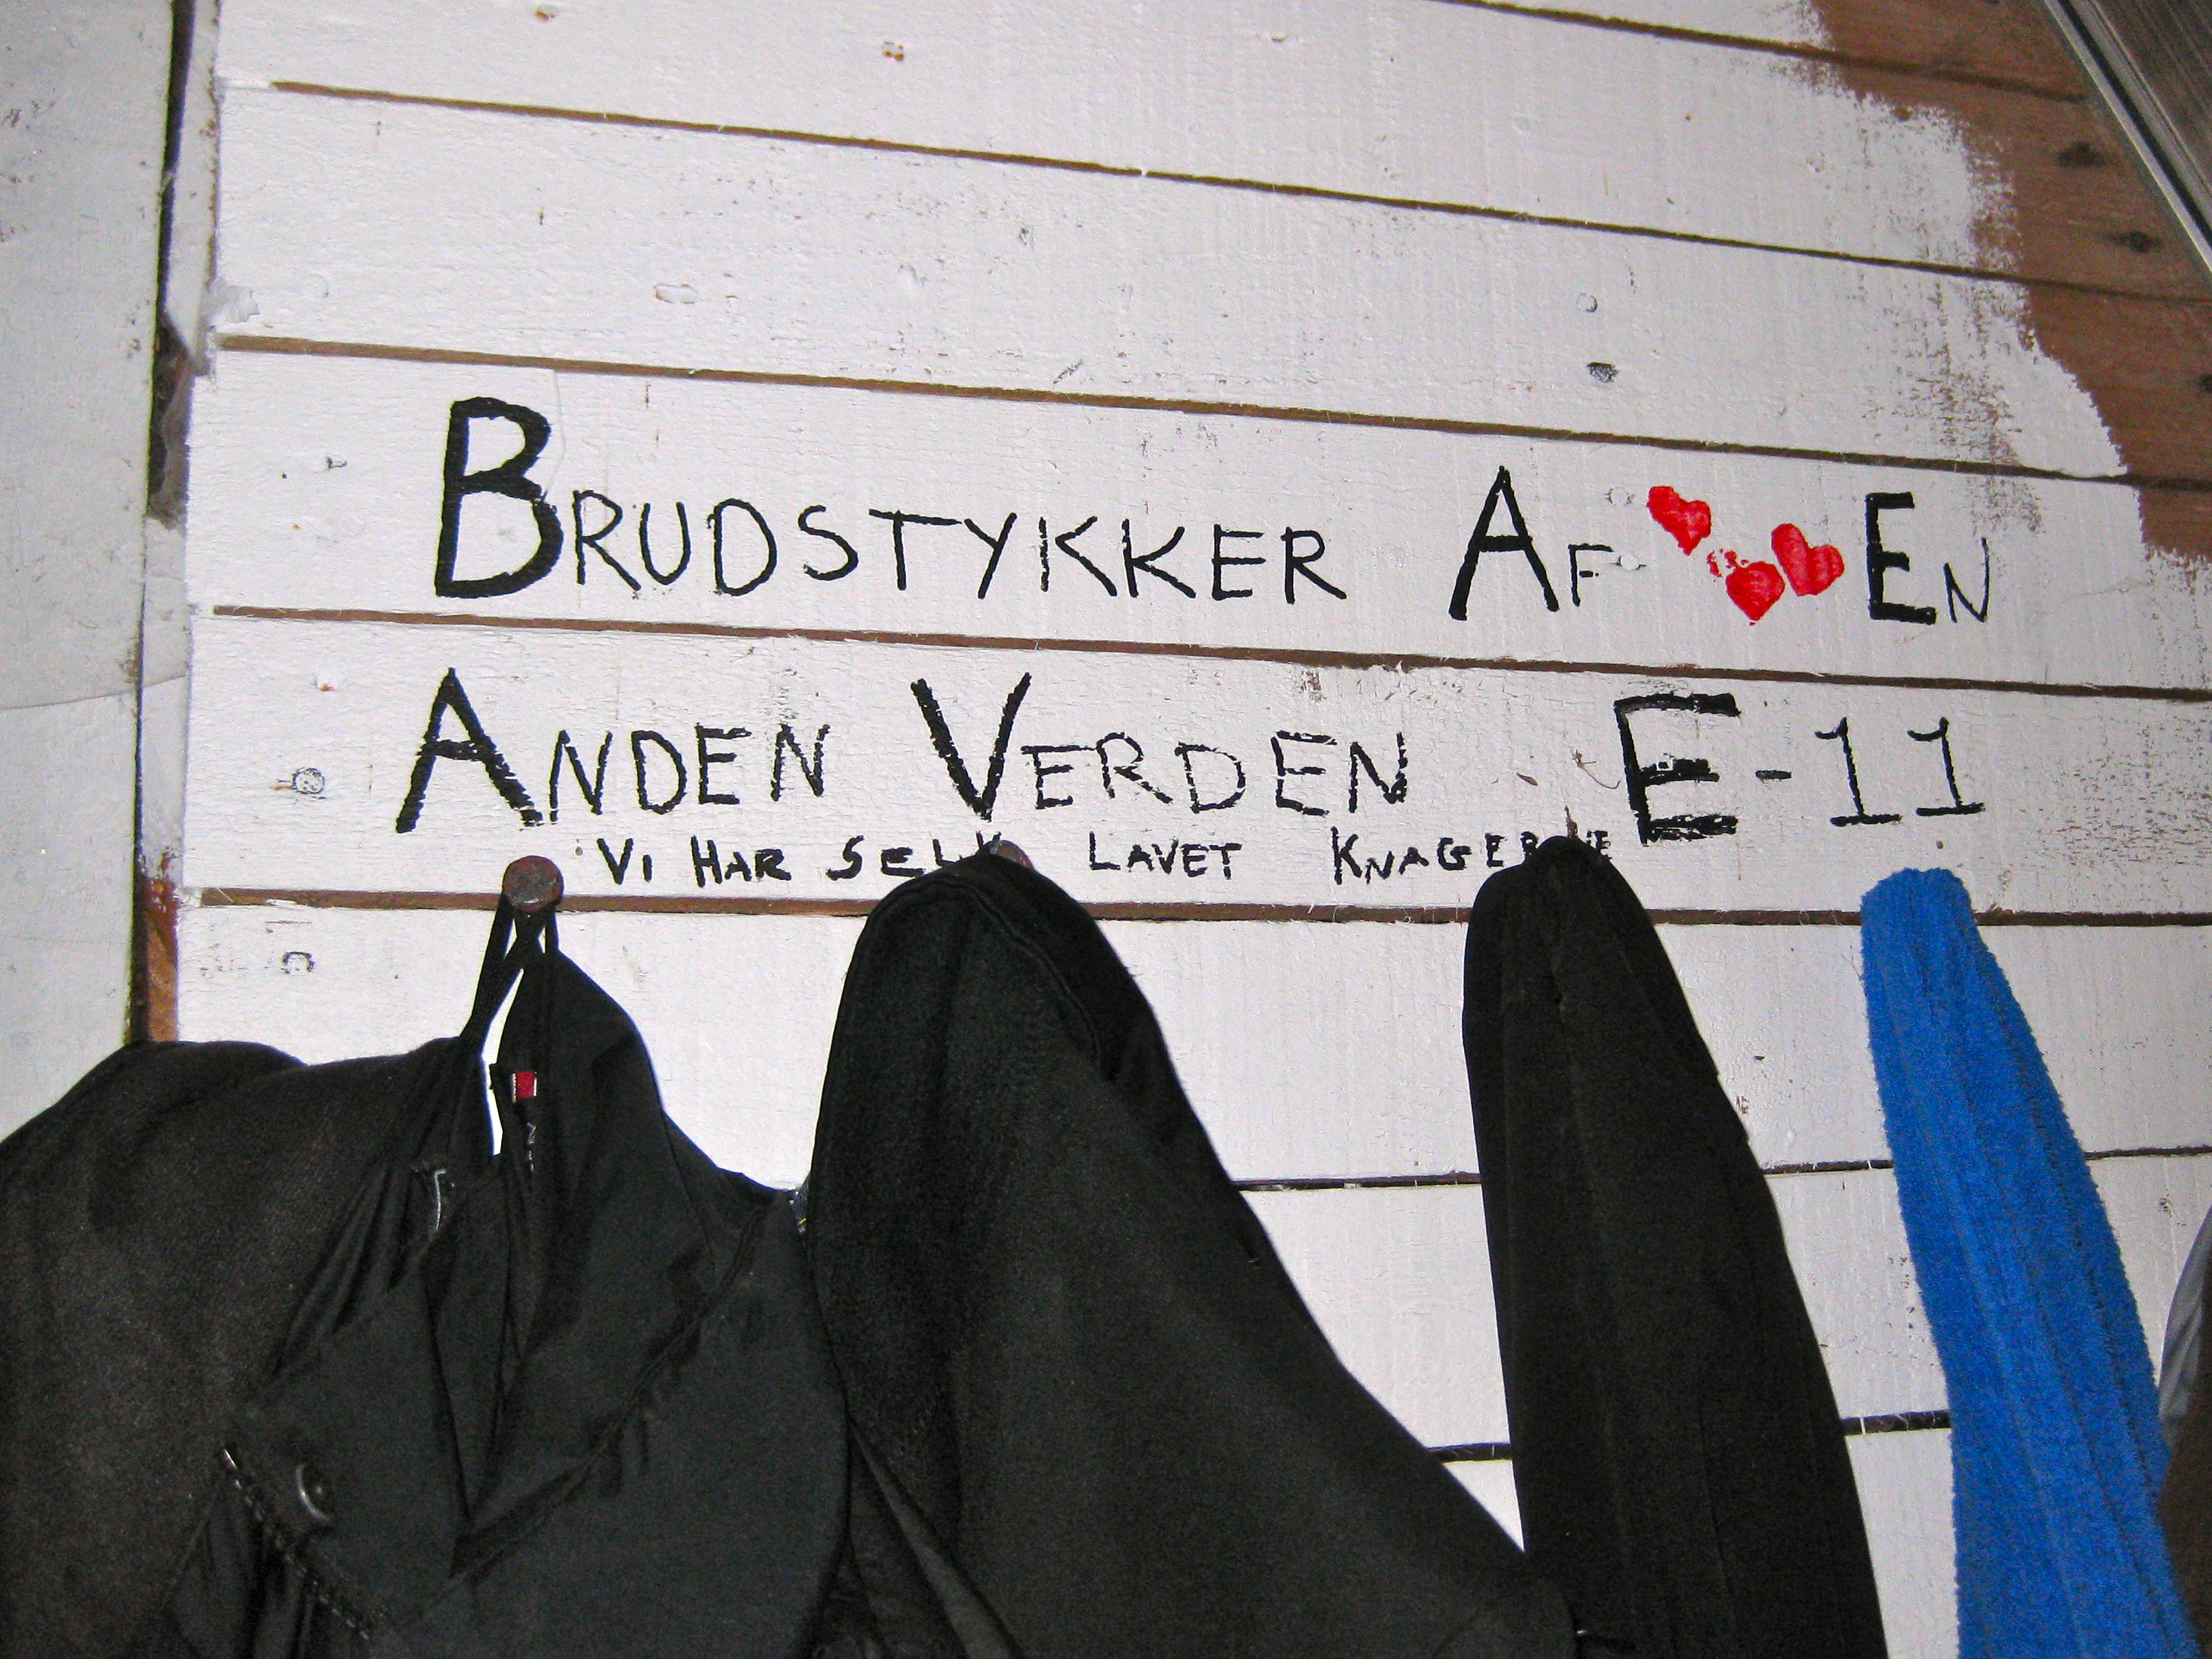 BRUDSTYKKER AF EN
ANDEN VERDEN E-11
VI HAR SELV LAVET KNAGERNE